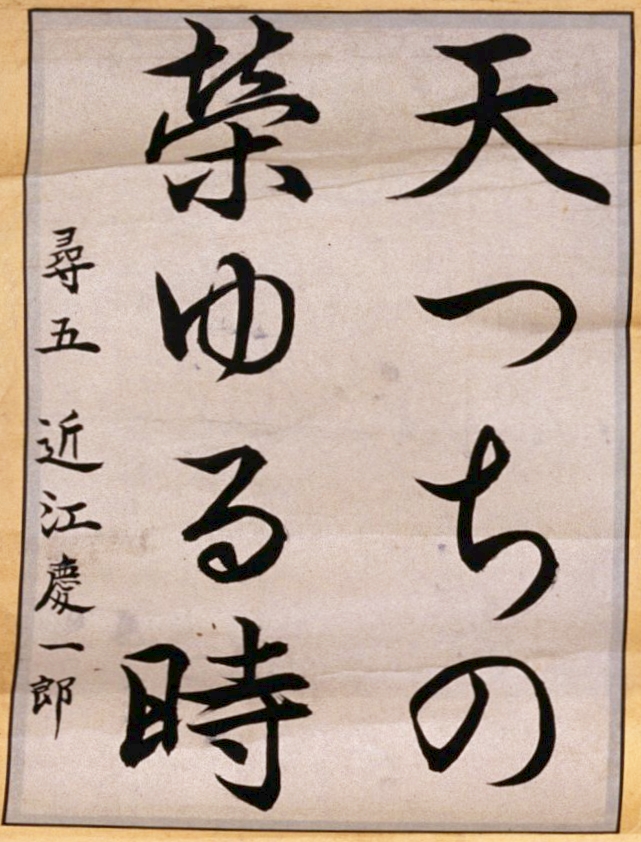 天つちの
栄ゆる時
尋五 近江慶一郎